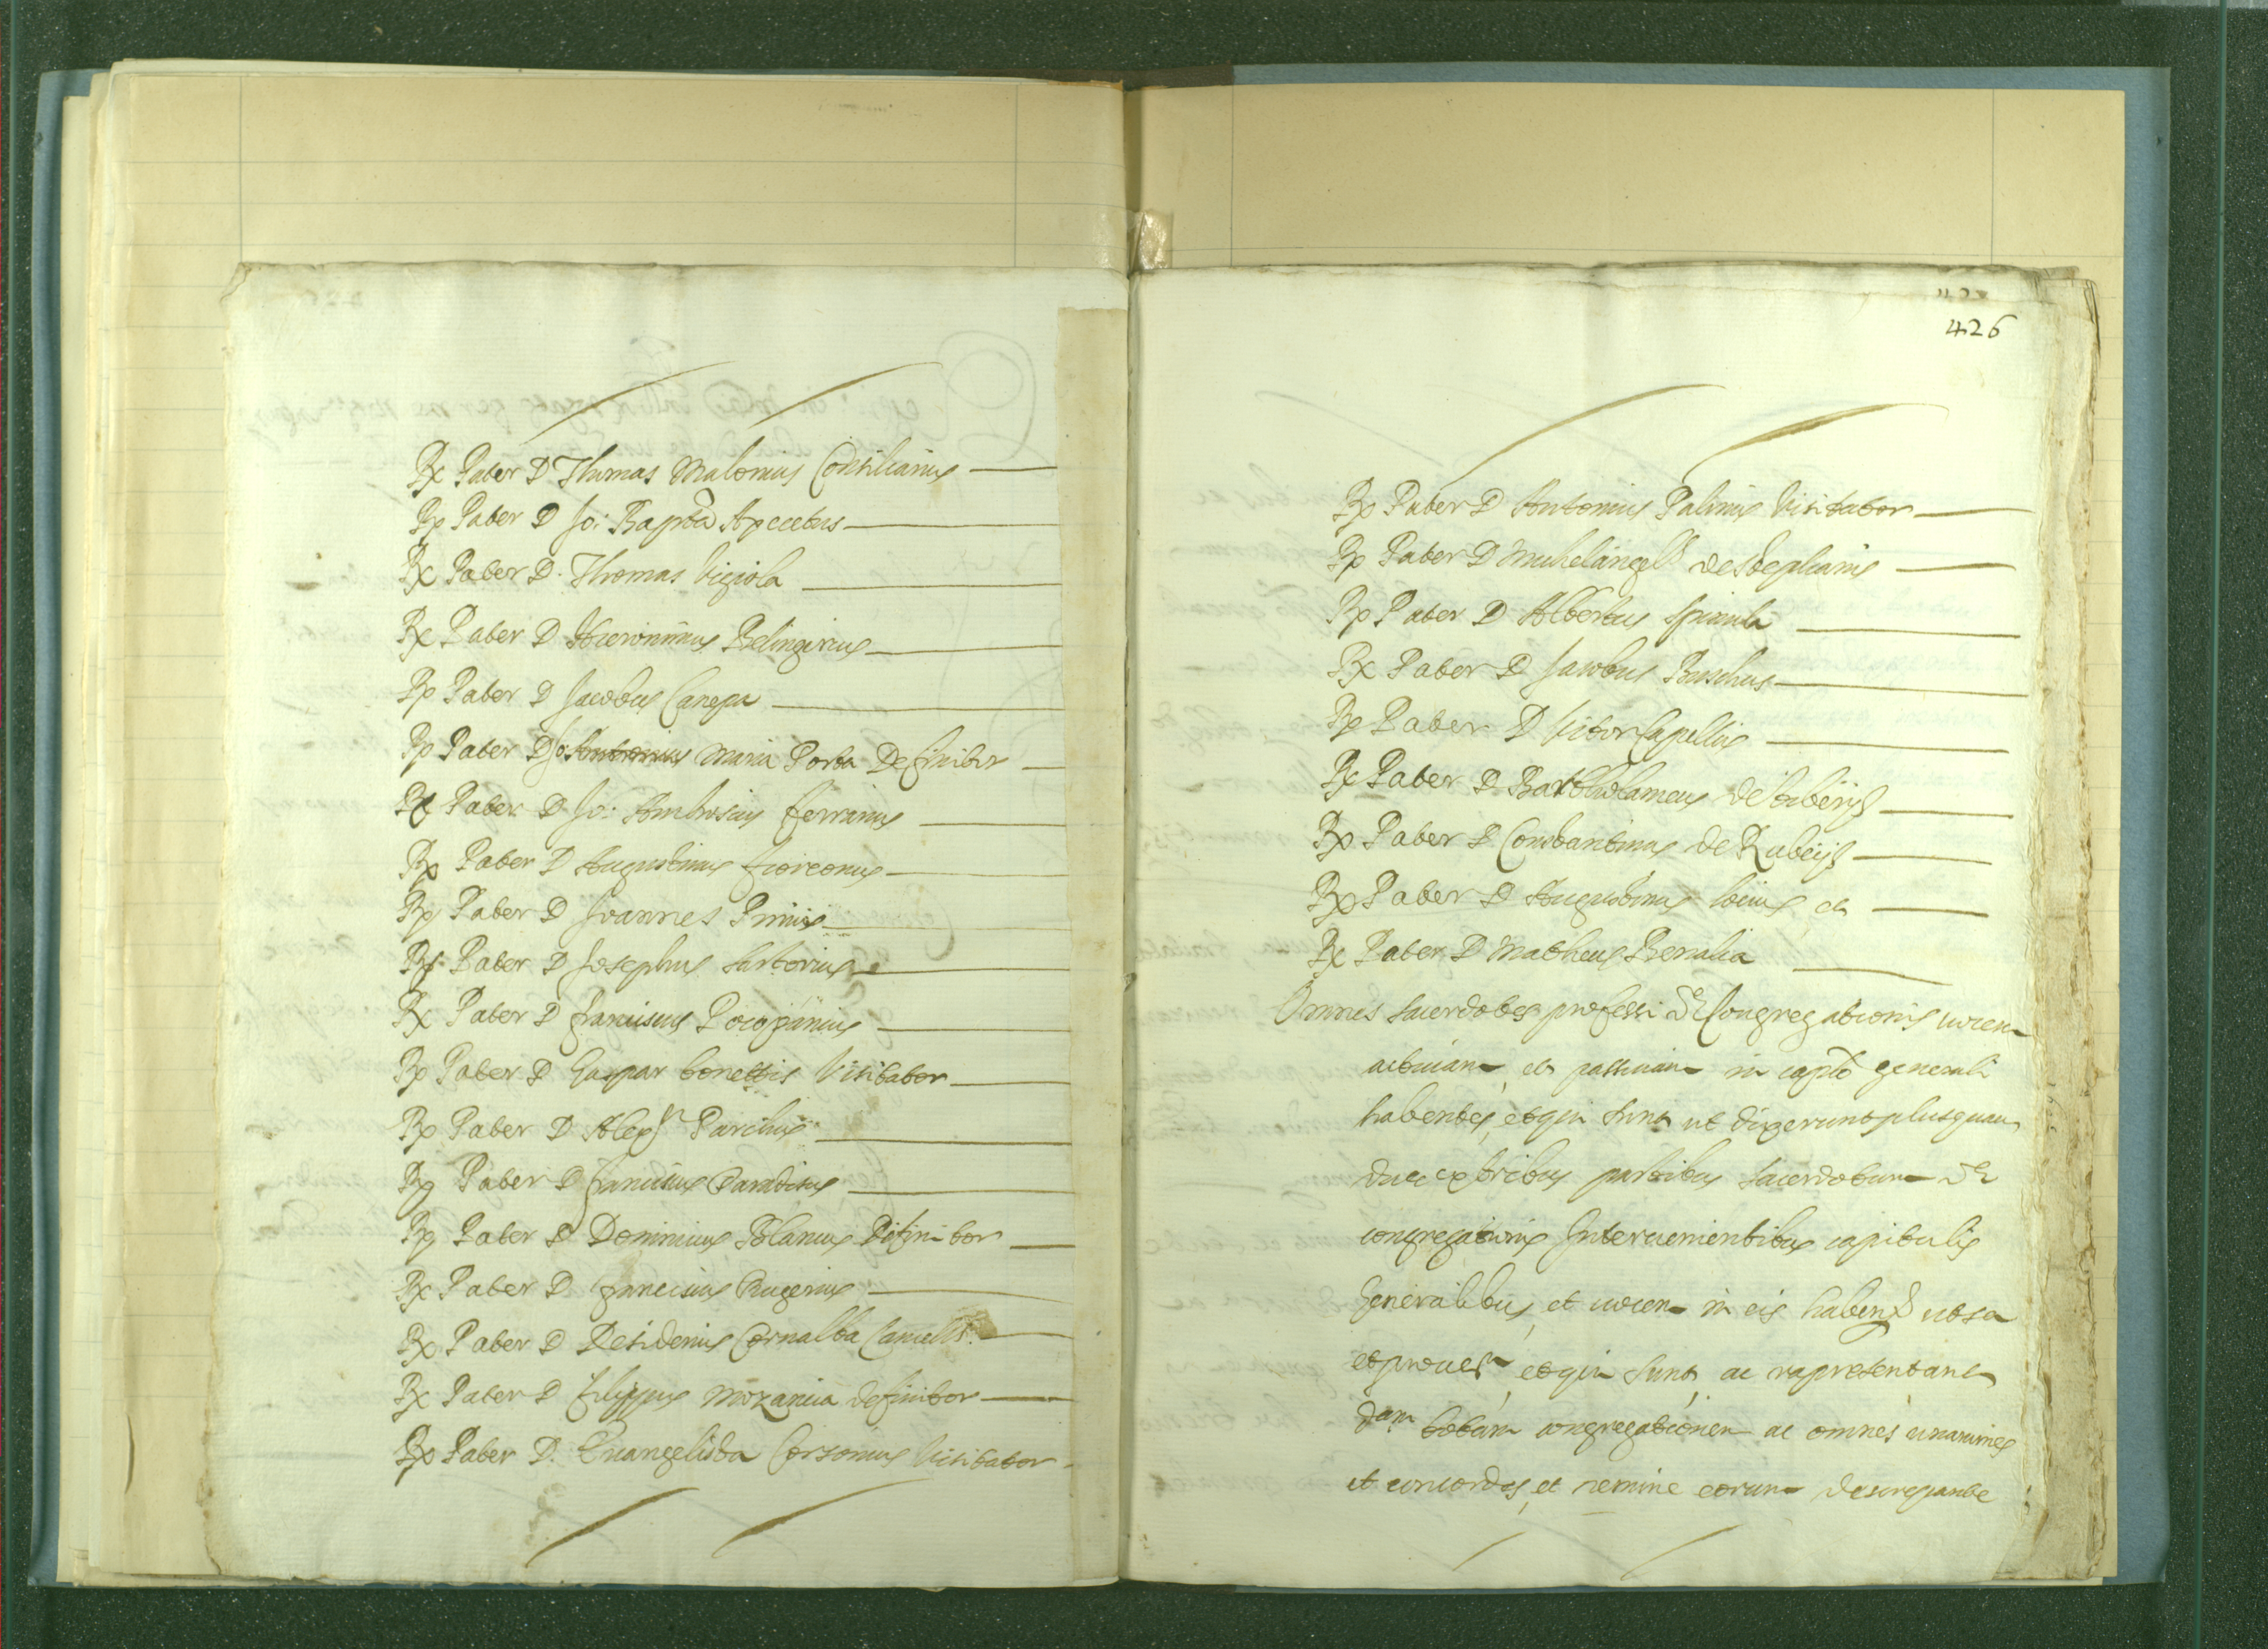 Rx Pater D Thomas Malonius Consiliarius
Rp Pater D Jo: Bapta Apcetus
Rx Pater D. Thomas Vigiola
Rx Pater D Hieronimus Belingirius
Rp Pater D Jacobus Canepa
Rp Pater D Jo: Antonius Maria Porta Definitor
Rx Pater D Jo: Ambrosius ferrarius
Rp Pater D Augustinus
Rp Pater D Joannes Primis
Rx Pater D Josephus Sartorius
Rx Pater D franciscus
Rp Pater D Gaspar bonettis Visitator
Rp Pater D Alexr
Rp Pater D franciscus Paradisus
Rp Pater D Dominicus Polanus Difinitor
Rx Pater D franciscus Rugerius
Rx Pater D Desiderius Cornalba Cancells
Rx Pater D filippus Mozanica definitor
Rp Pater D. Euangelista Corsonius Visitator
426
Rp Pater D Antonius Palinus Visitator
Rp Pater D Michelangels de stephanis
Rp Pater D Albertus Spinula
Rx Pater D Jacobus Buschus
Rp Pater D Vitor Capellus
Rx Pater D Bartholameus
Rp Pater D Constantinus de Rubeijs
Rp Pater D Augustinus et
Rx Pater D Matheus Benalia
Omnes Sacerdotes professi de Congregationis vocem
actiuam et passiuam in capto generali
habentes, et qui sunt ut dixerunt plusquam
duae ex tribus partibus sacerdotum de
congregationis Interuenientibus capitulis
Generalibus, et vocem in eis habend
et qui sunt, ac rapresentant
dam totam congregationem ac omnes unanimes
et concordes, et nemine eorum discrepante